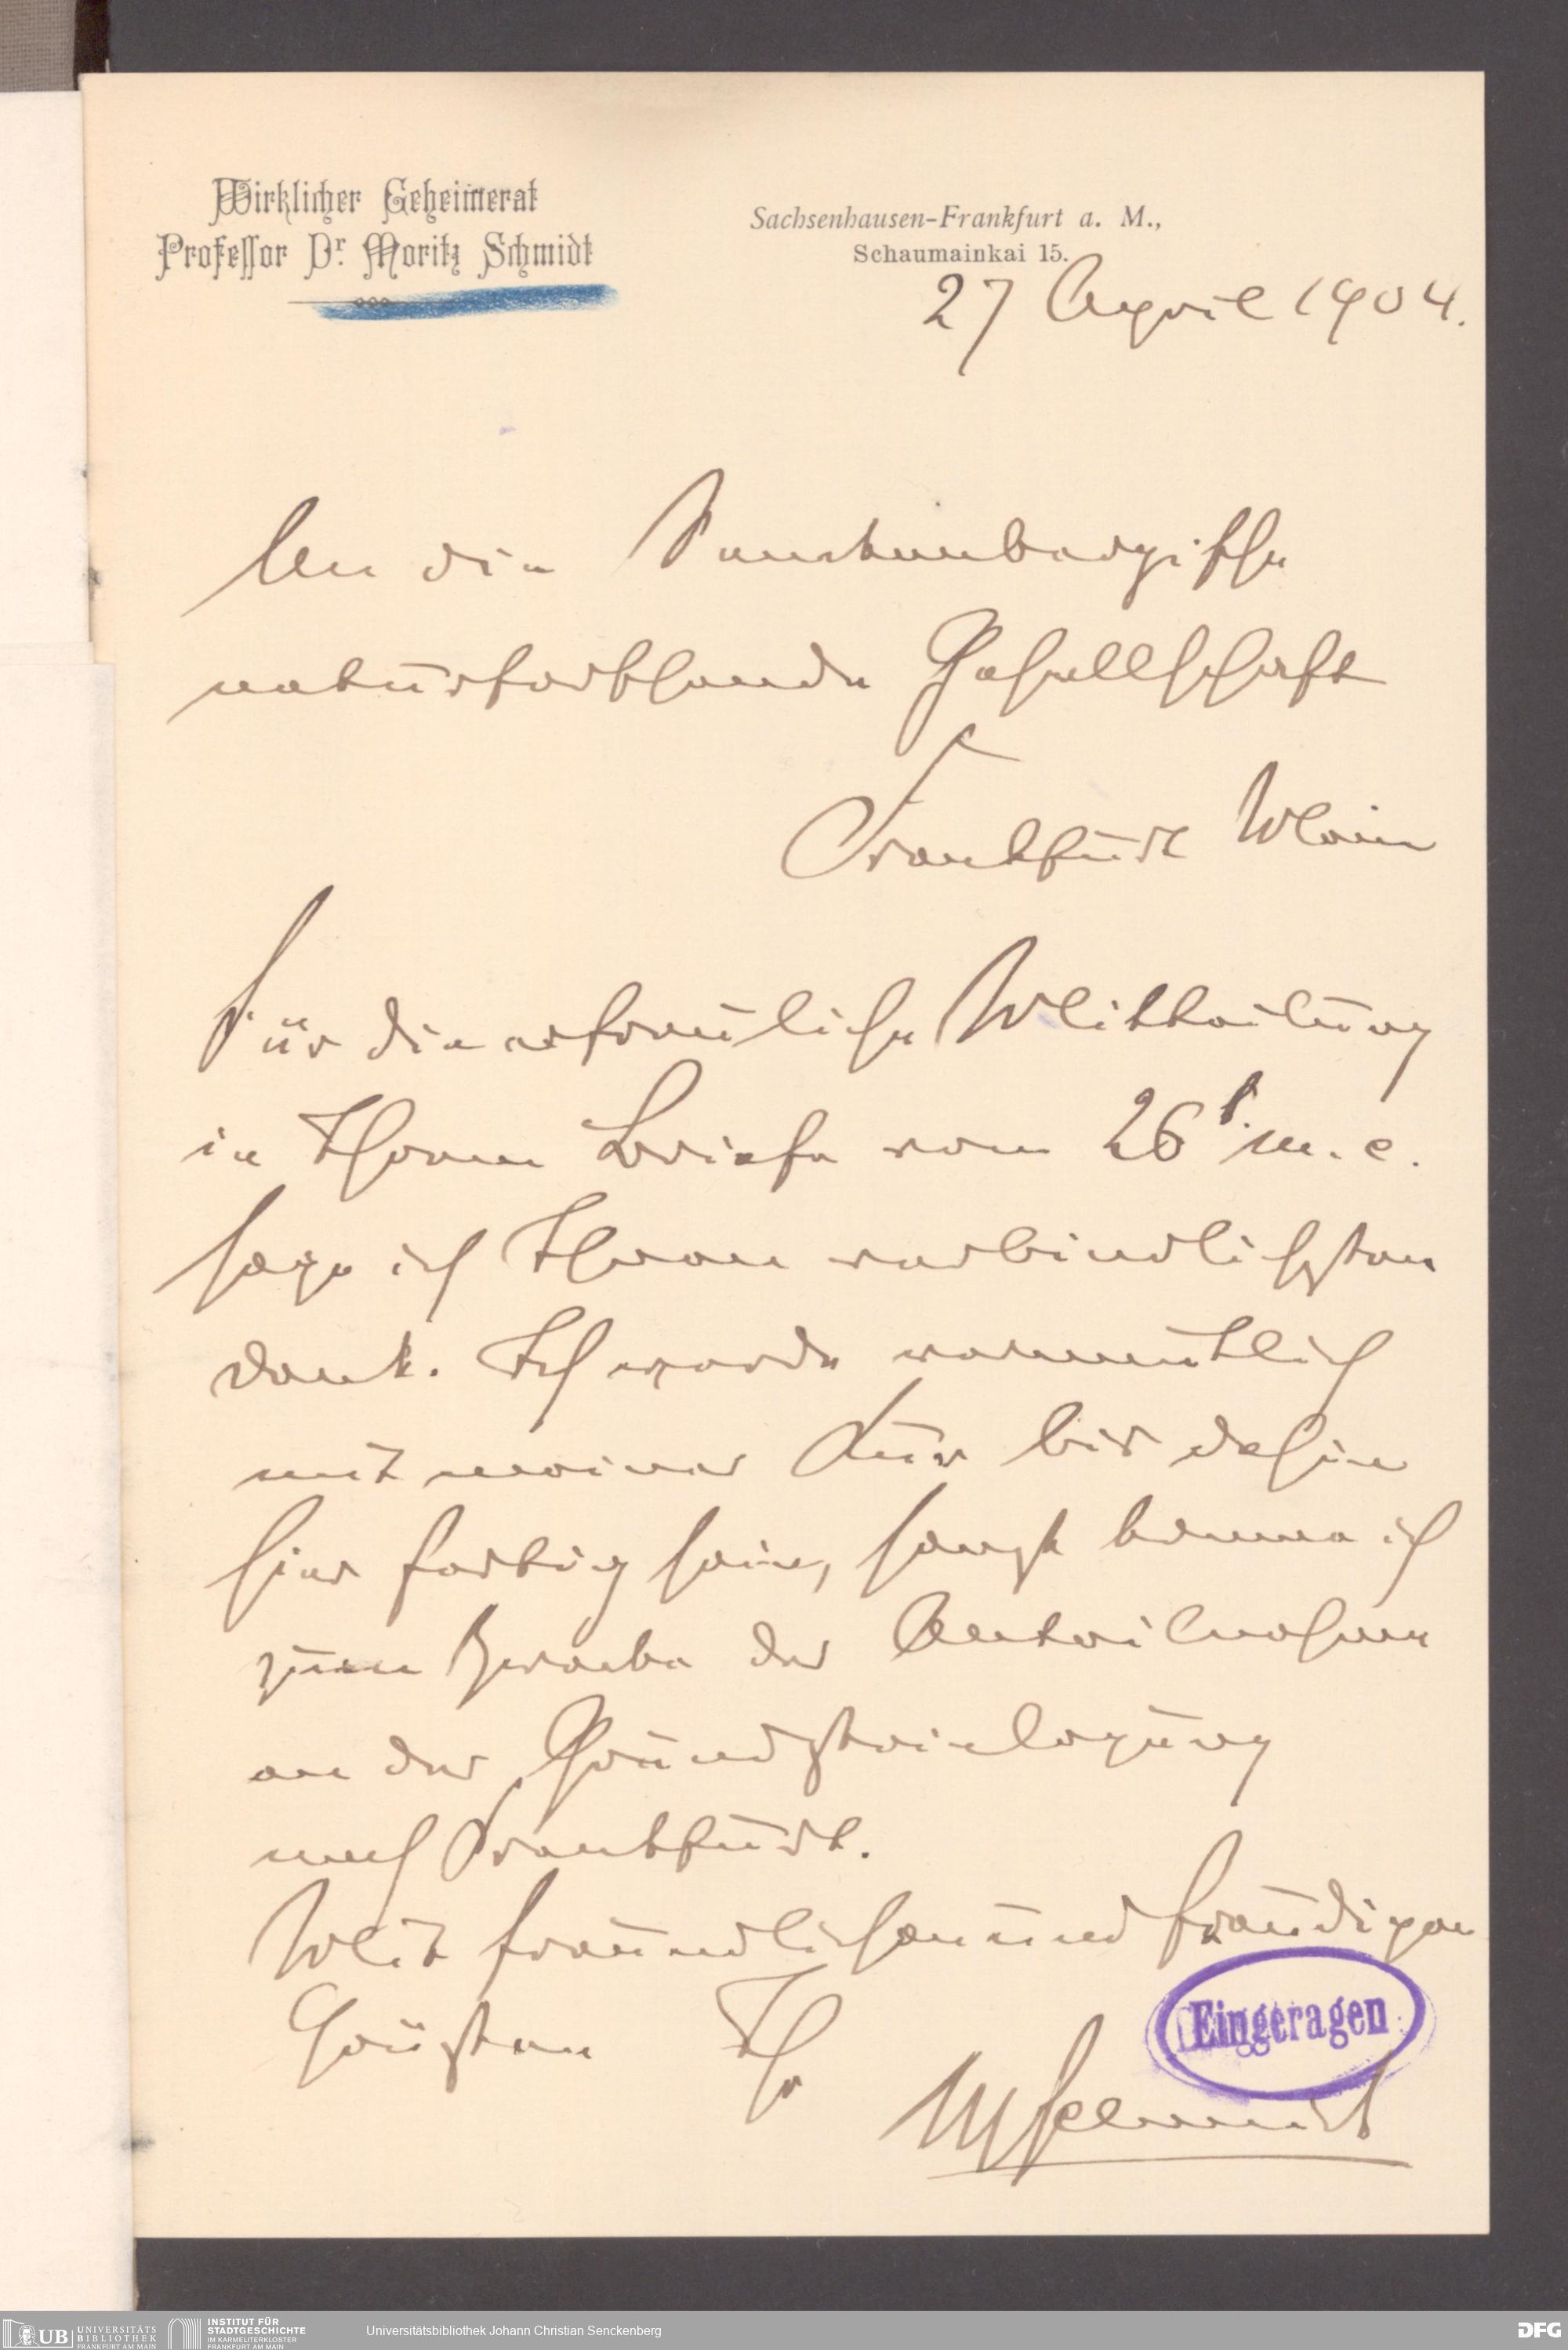 Wirklicher Geheimerat
Professor Dr. Moritz Schmidt
Sachsenhausen-Frankfurt a. M.,
Schaumainkai 15.
27 April 1904.
An die Senckenbergische
naturforschende Gesellschaft
Frankfurt Main
Für die erfreuliche Mitteilung
in Ihrem Briefe vom 26t. m. c.
sage ich Ihnen verbindlichsten
Dank. Ich werde vermutlich
mit meiner Kur bis dahin
hier fertig sein, sonst komme ich
zum Zwecke der Anteilnahme
an der Grundsteinlegung
nach Frankfurt.
Mit freundlichen und freudigen
Grüßen Ihr
M Schmidt
Eingetragen
UB UNIVERSITÄTS
BIBLIOTHEK
FRANKFURT AM MAIN
INSTITUT FÜR
STADTGESCHICHTE
IM KARMELITERKLOSTER
FRANKFURT AM MAIN
Universitätsbibliothek Johann Christian Senckenberg
DFG